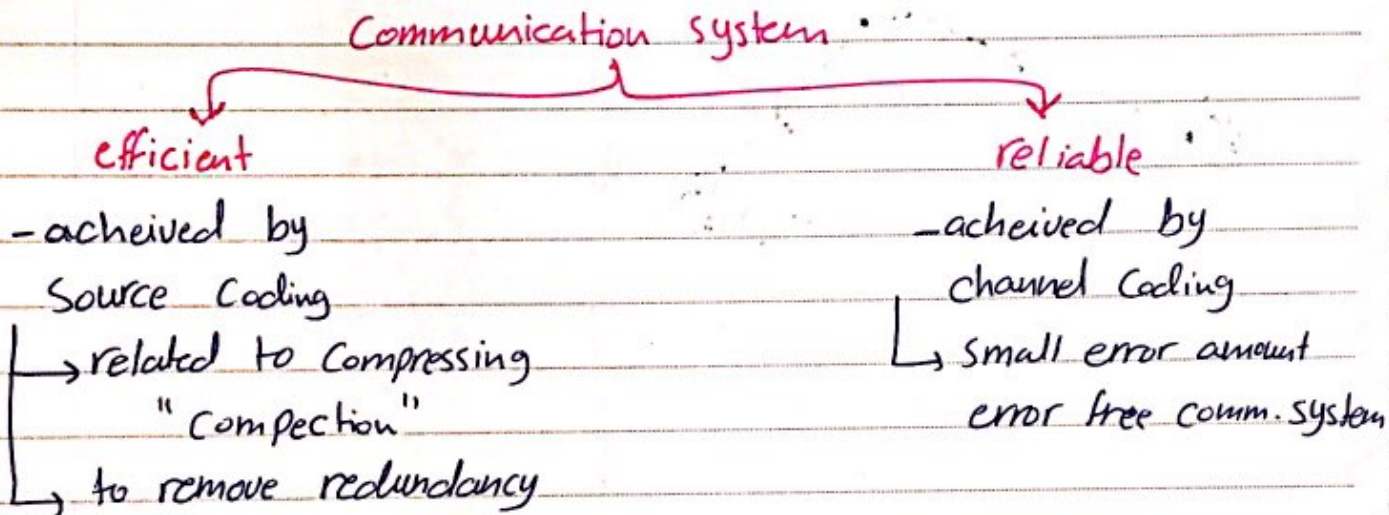 Communication system
efficient
- acheived by
Source Coding
→ related to Compressing
"Compection"
→ to remove redundancy
reliable
- acheived by
channel Coding
→ small error amount
error free comm. system